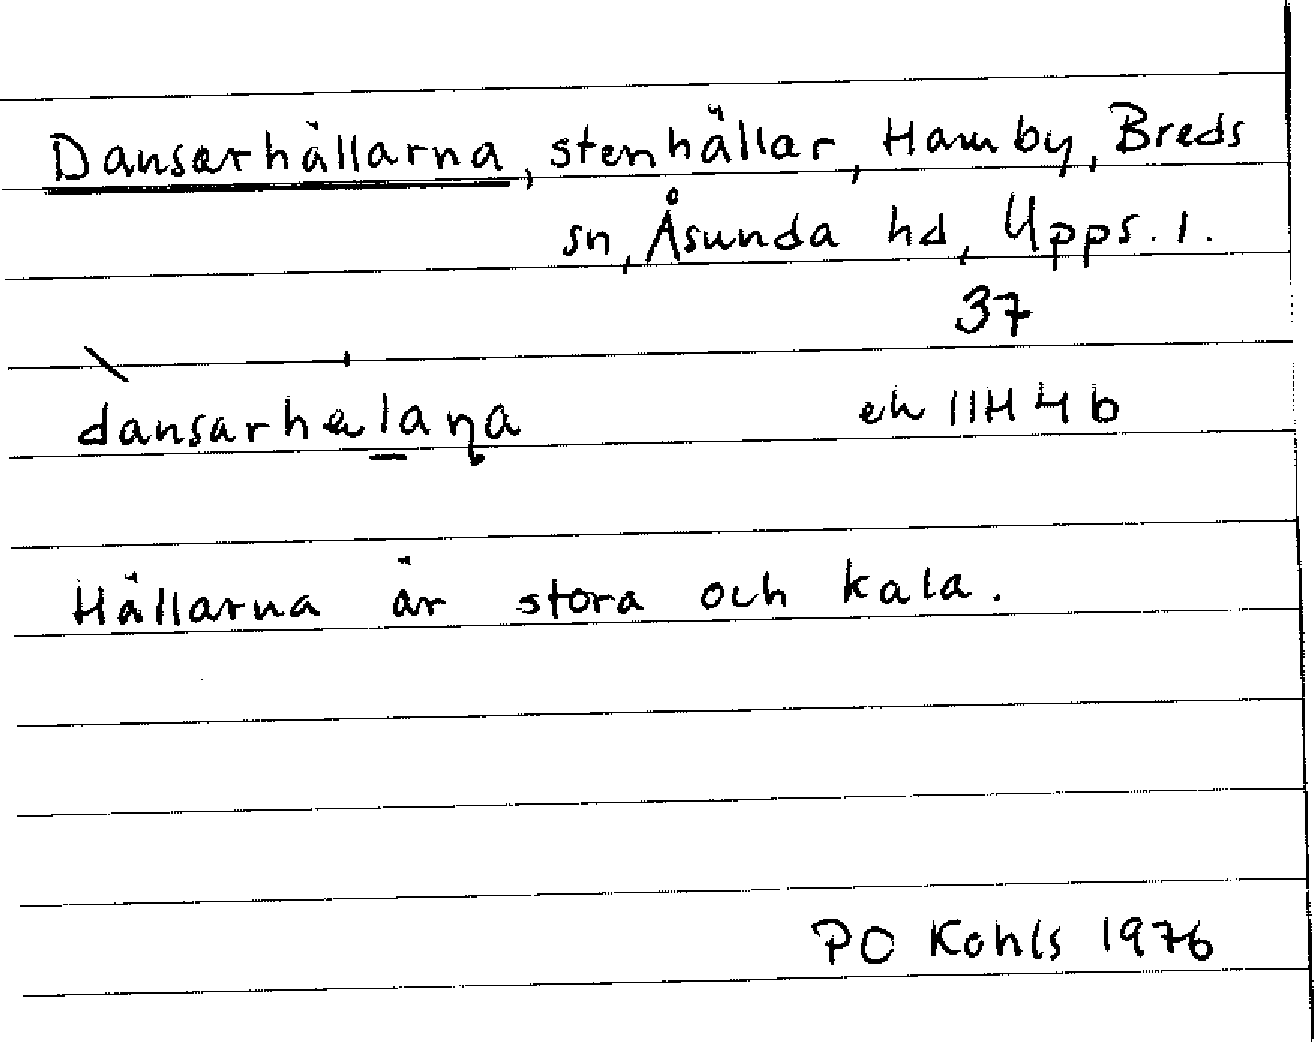 Dansarhällarna, stenhällar, Hamby, Breds
sn, Åsunda hd, Upps. l.
37
dansarhælaṇa ek 11H 4b
Hällarna är stora och kala.
PO Kohls 1976